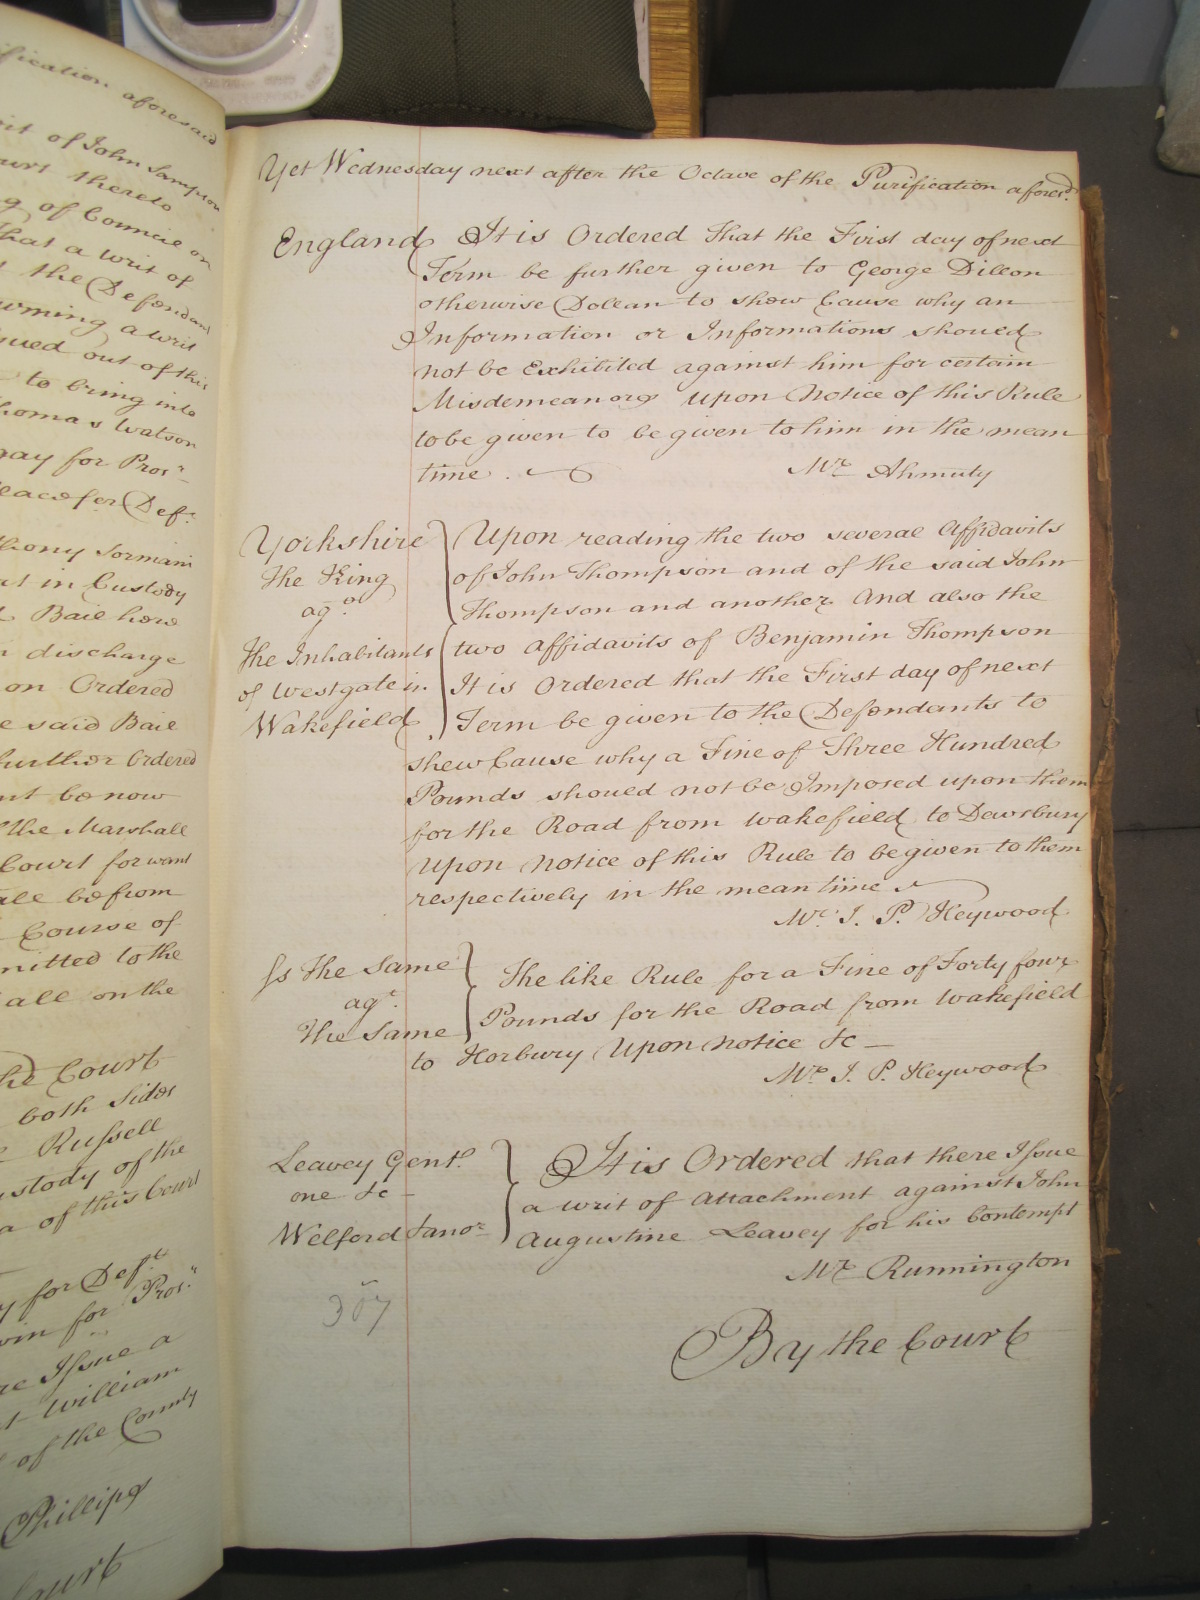 ification aforesaid
it of John Sampson
ourt thereto
g of Councie on
That a writ of
the Defendant
wming a writ
ued out of this
to bring into
homas Watson
ay for Pros.r
eace for Def.t
hony Sormani
at in Custody
Baie here
discharge
on Ordered
e said Baie
further Ordered
nt be now
the Marshall
Court for want
ale be from
Course of
mitted to the
all on the
he Court
both sides
Russell
ustody of the
a of this Court
y for Def.t
win for Pros.r
re Issue a
t William
of the County
Phillips
Court
Yet Wednesday next after the Octave of the Purification afores.d
England It is Ordered That the First day of next
Term be further given to George Dillon
otherwise Dollan to shew Cause why an
Information or Informations should
not be Exhibited against him for certain
Misdemeanors upon Notice of this Rule
to be given to be given to him in the mean
time. Mr. Ahmuty
Yorkshire Upon reading the two several Affidavits
The King of John Thompson and of the said John
ag.t Thompson and another And also the
The Inhabitants two Affidavits of Benjamin Thompson
of Westgate in It is Ordered that the First day of next
Wakefield Term be given to the Defendants to
shew Cause why a Fine of Three Hundred
Pounds should not be Imposed upon them
for the Road from Wakefield to Dewsbury
Upon Notice of this Rule to be given to them
respectively in the mean time
Mr. I. P. Heywood
Ss The Same The like Rule for a Fine of Forty four
ag.t Pounds for the Road from Wakefield
The Same
to Horbury Upon Notice &c
Mr. I. P. Heywood
Leavey Gent.
one &c
It is Ordered that there Issue
a writ of Attachment against John
Welford & anor Augustine Leavey for his Contempt
Mr. Runnington
307
By the Court